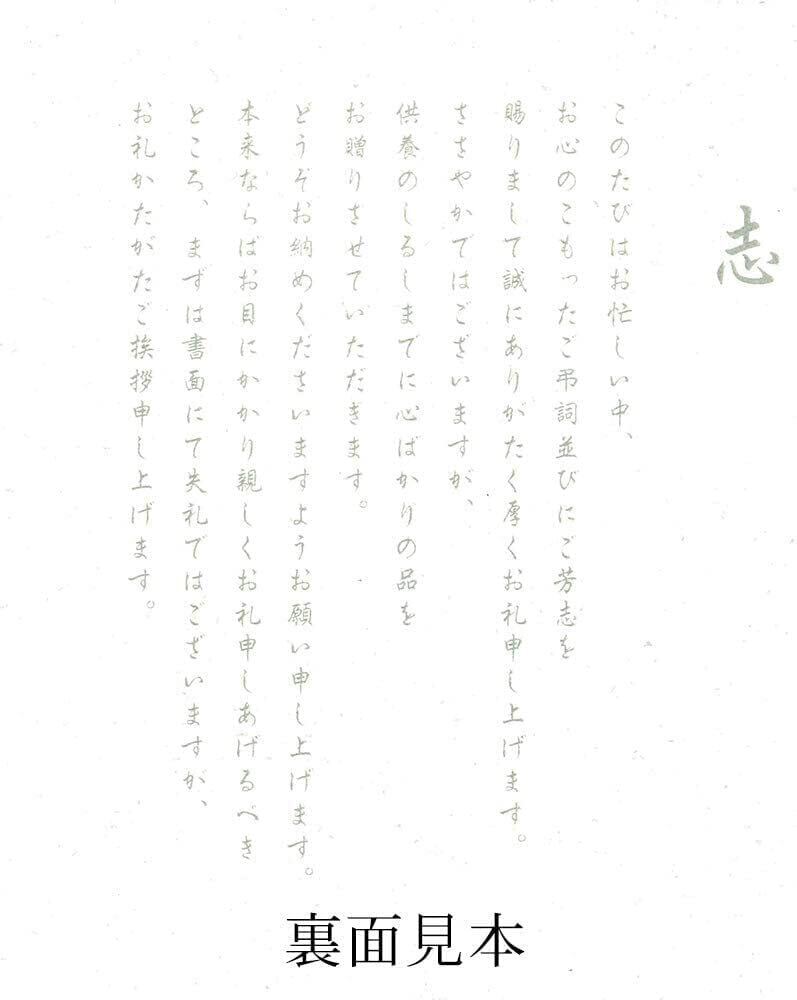 志
このたびはお忙しい中、
お心のこもったご弔詞並びにご芳志を
賜りまして誠にありがたく厚くお礼申し上げます。
ささやかではございますが、
供養のしるしまでに心ばかりの品を
お贈りさせていただきます。
どうぞお納めくださいますようお願い申し上げます。
本来ならばお目にかかり親しくお礼申しあげるべき
ところ、まずは書面にて失礼ではございますが、
お礼かたがたご挨拶申し上げます。
裏面見本